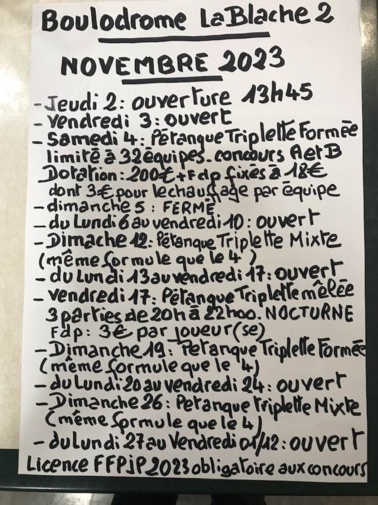 Boulodrome LaBlache 2
NOVEMBRE 2023
- Jeudi 2: ouverture 13h45
- Vendredi 3: ouvert
- Samedi 4: Pétanque Triplette Formée
limité à 32 équipes - concours A et B
Dotation: 200€ + Fdp fixés à 18€
dont 3€ pour le chauffage par équipe
- dimanche 5: FERMÉ
- du Lundi 6 au vendredi 10: ouvert
- Dimache 12: Pétanque Triplette Mixte
(même formule que le 4)
- du Lundi 13 au vendredi 17: ouvert
- vendredi 17: Pétanque Triplette mêlée
3 parties de 20h à 22h00. NOCTURNE
Fdp: 3€ par joueur(se)
- Dimanche 19: Petanque Triplette Formée
(même formule que le 4)
- du Lundi 20 au vendredi 24: ouvert
- Dimanche 26: Petanque Triplette Mixte
(même formule que le 4)
- du Lundi 27 au Vendredi 01/12: ouvert
Licence FFPJP 2023 obligatoire aux concours